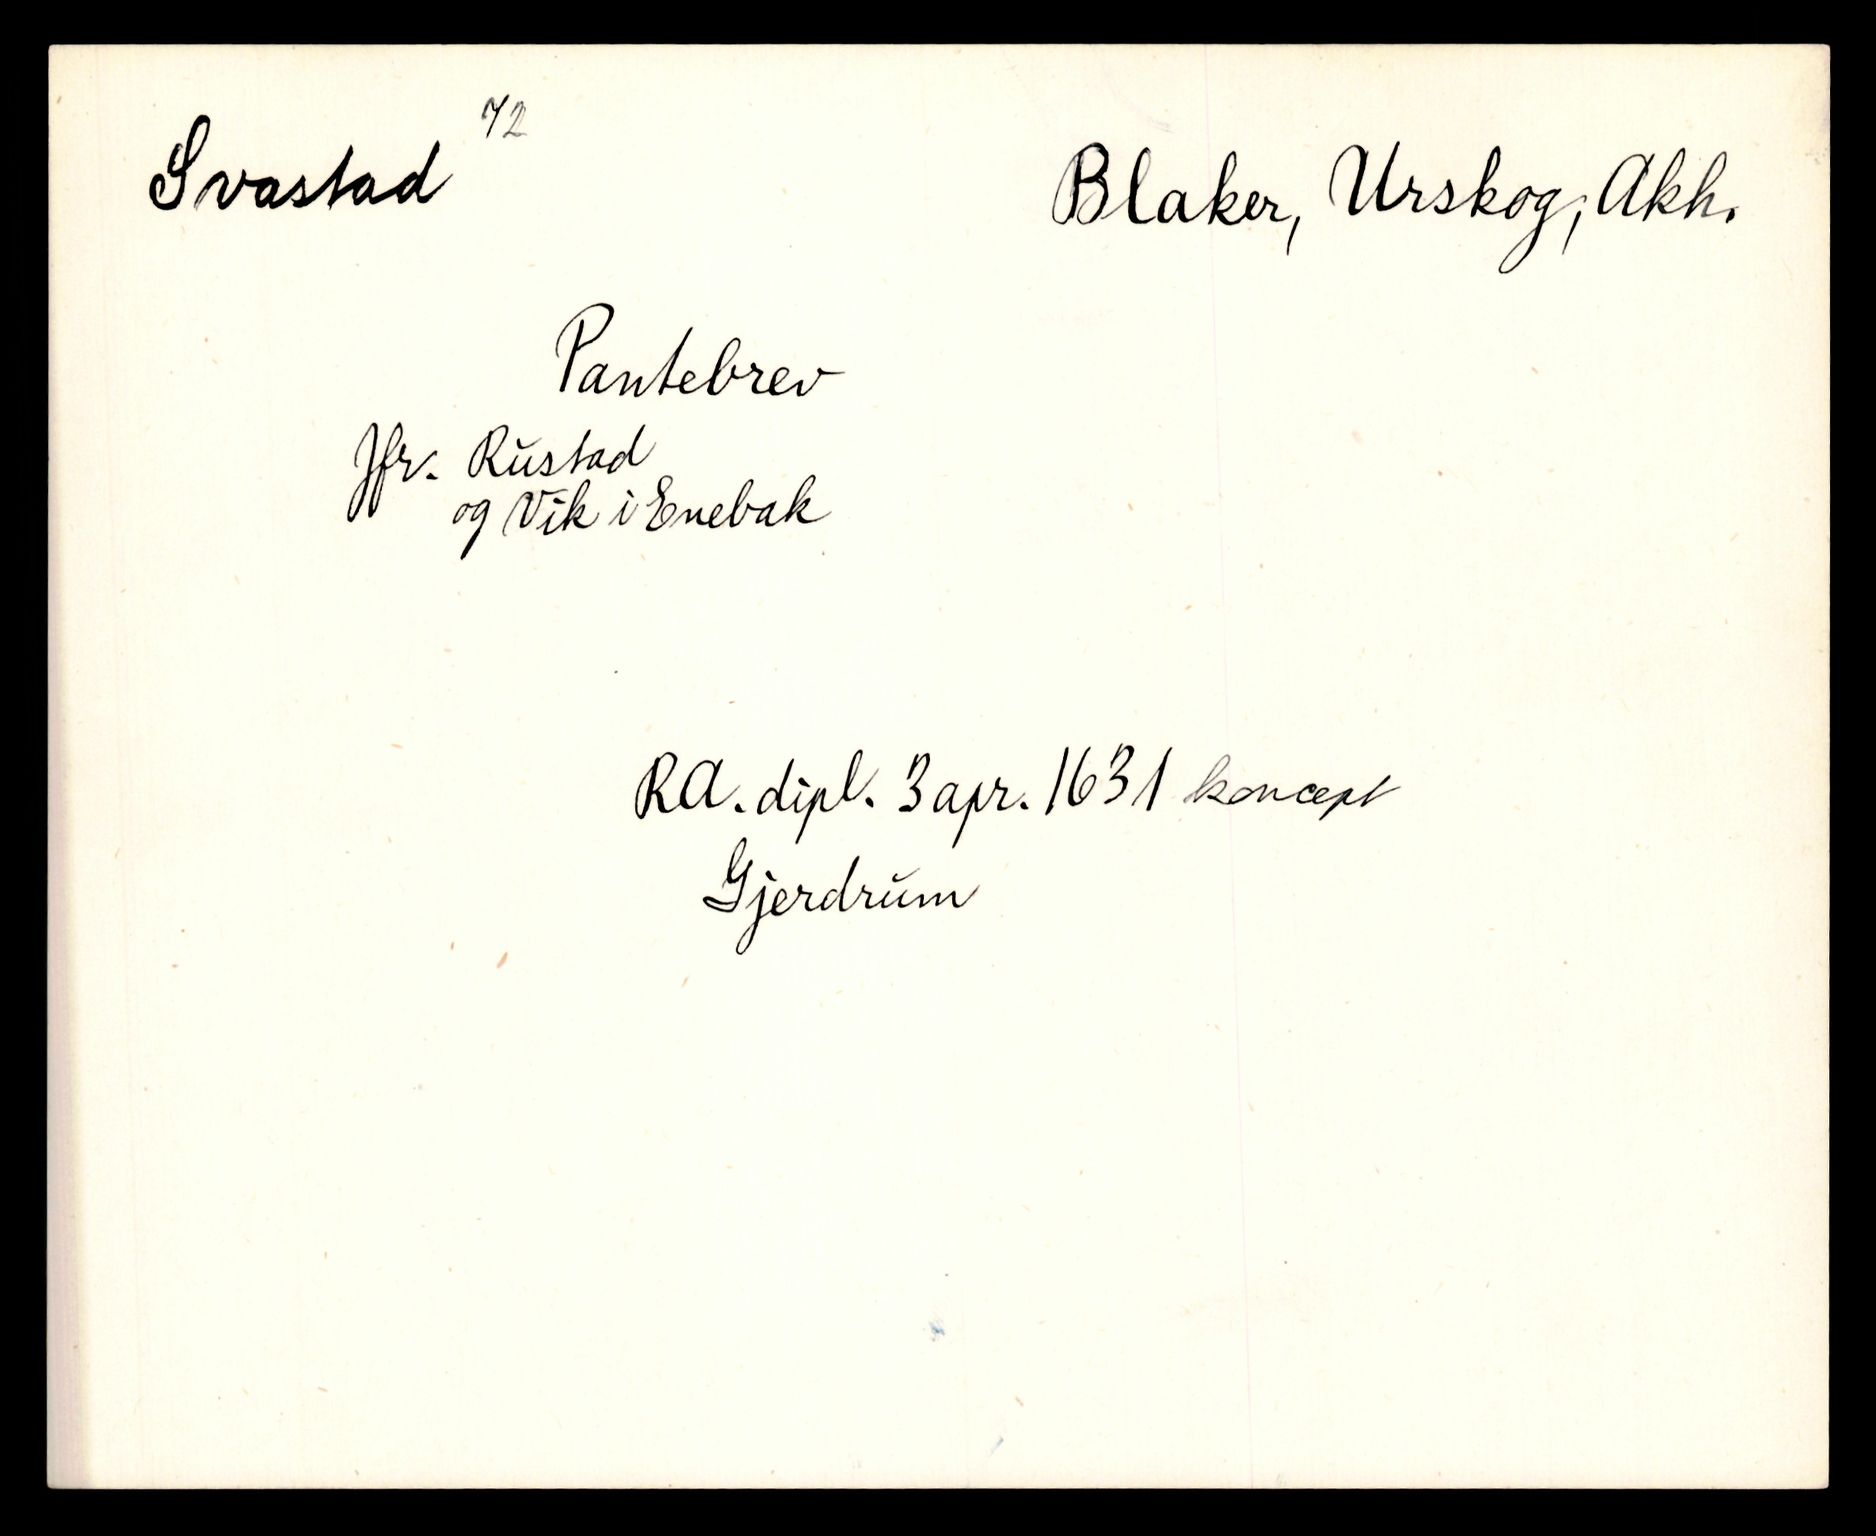 Svastad 72
Blaker, Urskog, Akh.
Pantebrev
Jfr. Rustad
og Vik i Enebak
RA. dipl. 3 apr. 1631 koncept
Gjerdrum